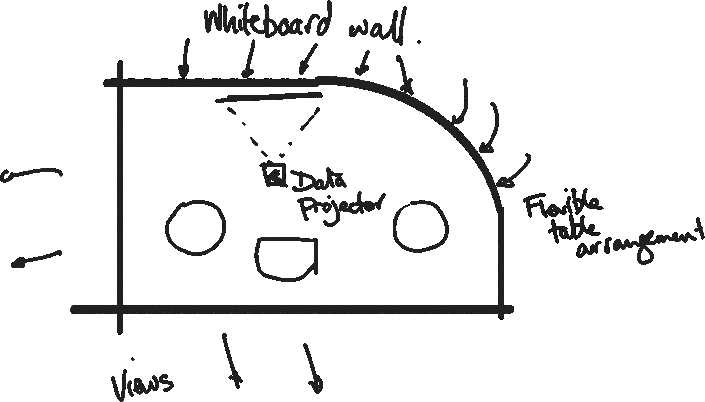 Whiteboard wall.
Data
Projector
Flexible
table
arrangement
Views